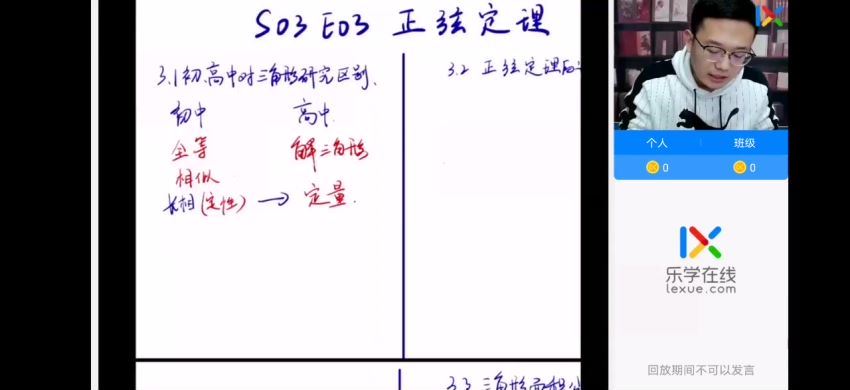 S03 E03 正弦定理
3.1 初、高中对三角形研究区别.
初中 高中
全等 解三角形
相似
长相(定性) → 定量.
3.2 正弦定理
3.3 三角形面积
个人 班级
0 0
乐学在线
lexue.com
回放期间不可以发言